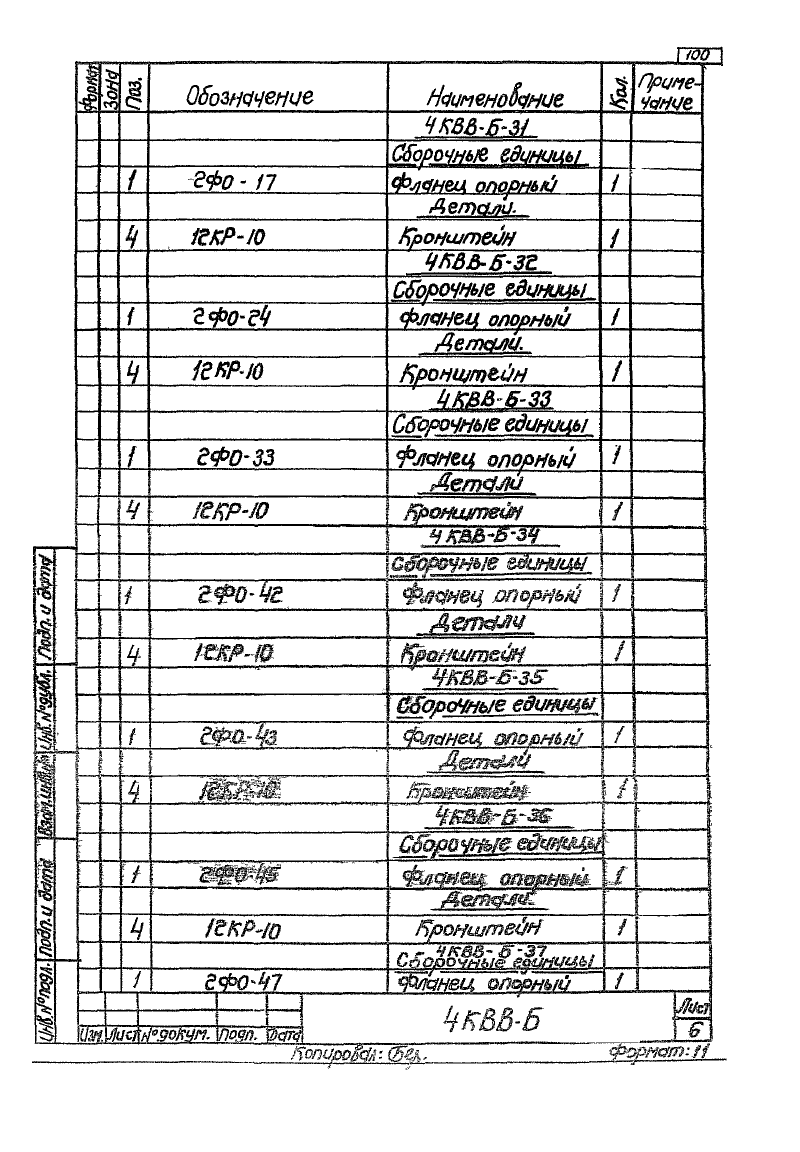 100
Формат Зона Поз. Обозначение Наименование Кол. Приме-чание
4КВВ-Б-31
Сборочные единицы
1 2ФО-17 Фланец опорный 1
Детали.
4 12КР-10 Кронштейн 1
4КВВ-Б-32
Сборочные единицы
1 2ФО-24 Фланец опорный 1
Детали.
4 12КР-10 Кронштейн 1
4КВВ-Б-33
Сборочные единицы
1 2ФО-33 Фланец опорный 1
Детали
4 12КР-10 Кронштейн 1
4КВВ-Б-34
Сборочные единицы
1 2ФО-42 Фланец опорный 1
Детали
4 12КР-10 Кронштейн 1
4КВВ-Б-35
Сборочные единицы
1 2ФО-43 Фланец опорный 1
Детали
4 12КР-10 Кронштейн 1
4КВВ-Б-36
Сборочные единицы
1 2ФО-45 Фланец опорный 1
Детали.
4 12КР-10 Кронштейн 1
4КВВ-Б-37
Сборочные единицы
1 2ФО-47 Фланец опорный 1
Подп. и дата
Инв. № дубл.
Взам. инв. №
Подп. и дата
Инв. № подл.
Изм. Лист № докум. Подп. Дата
4КВВ-Б
Лист
6
Копировал: Формат: 11